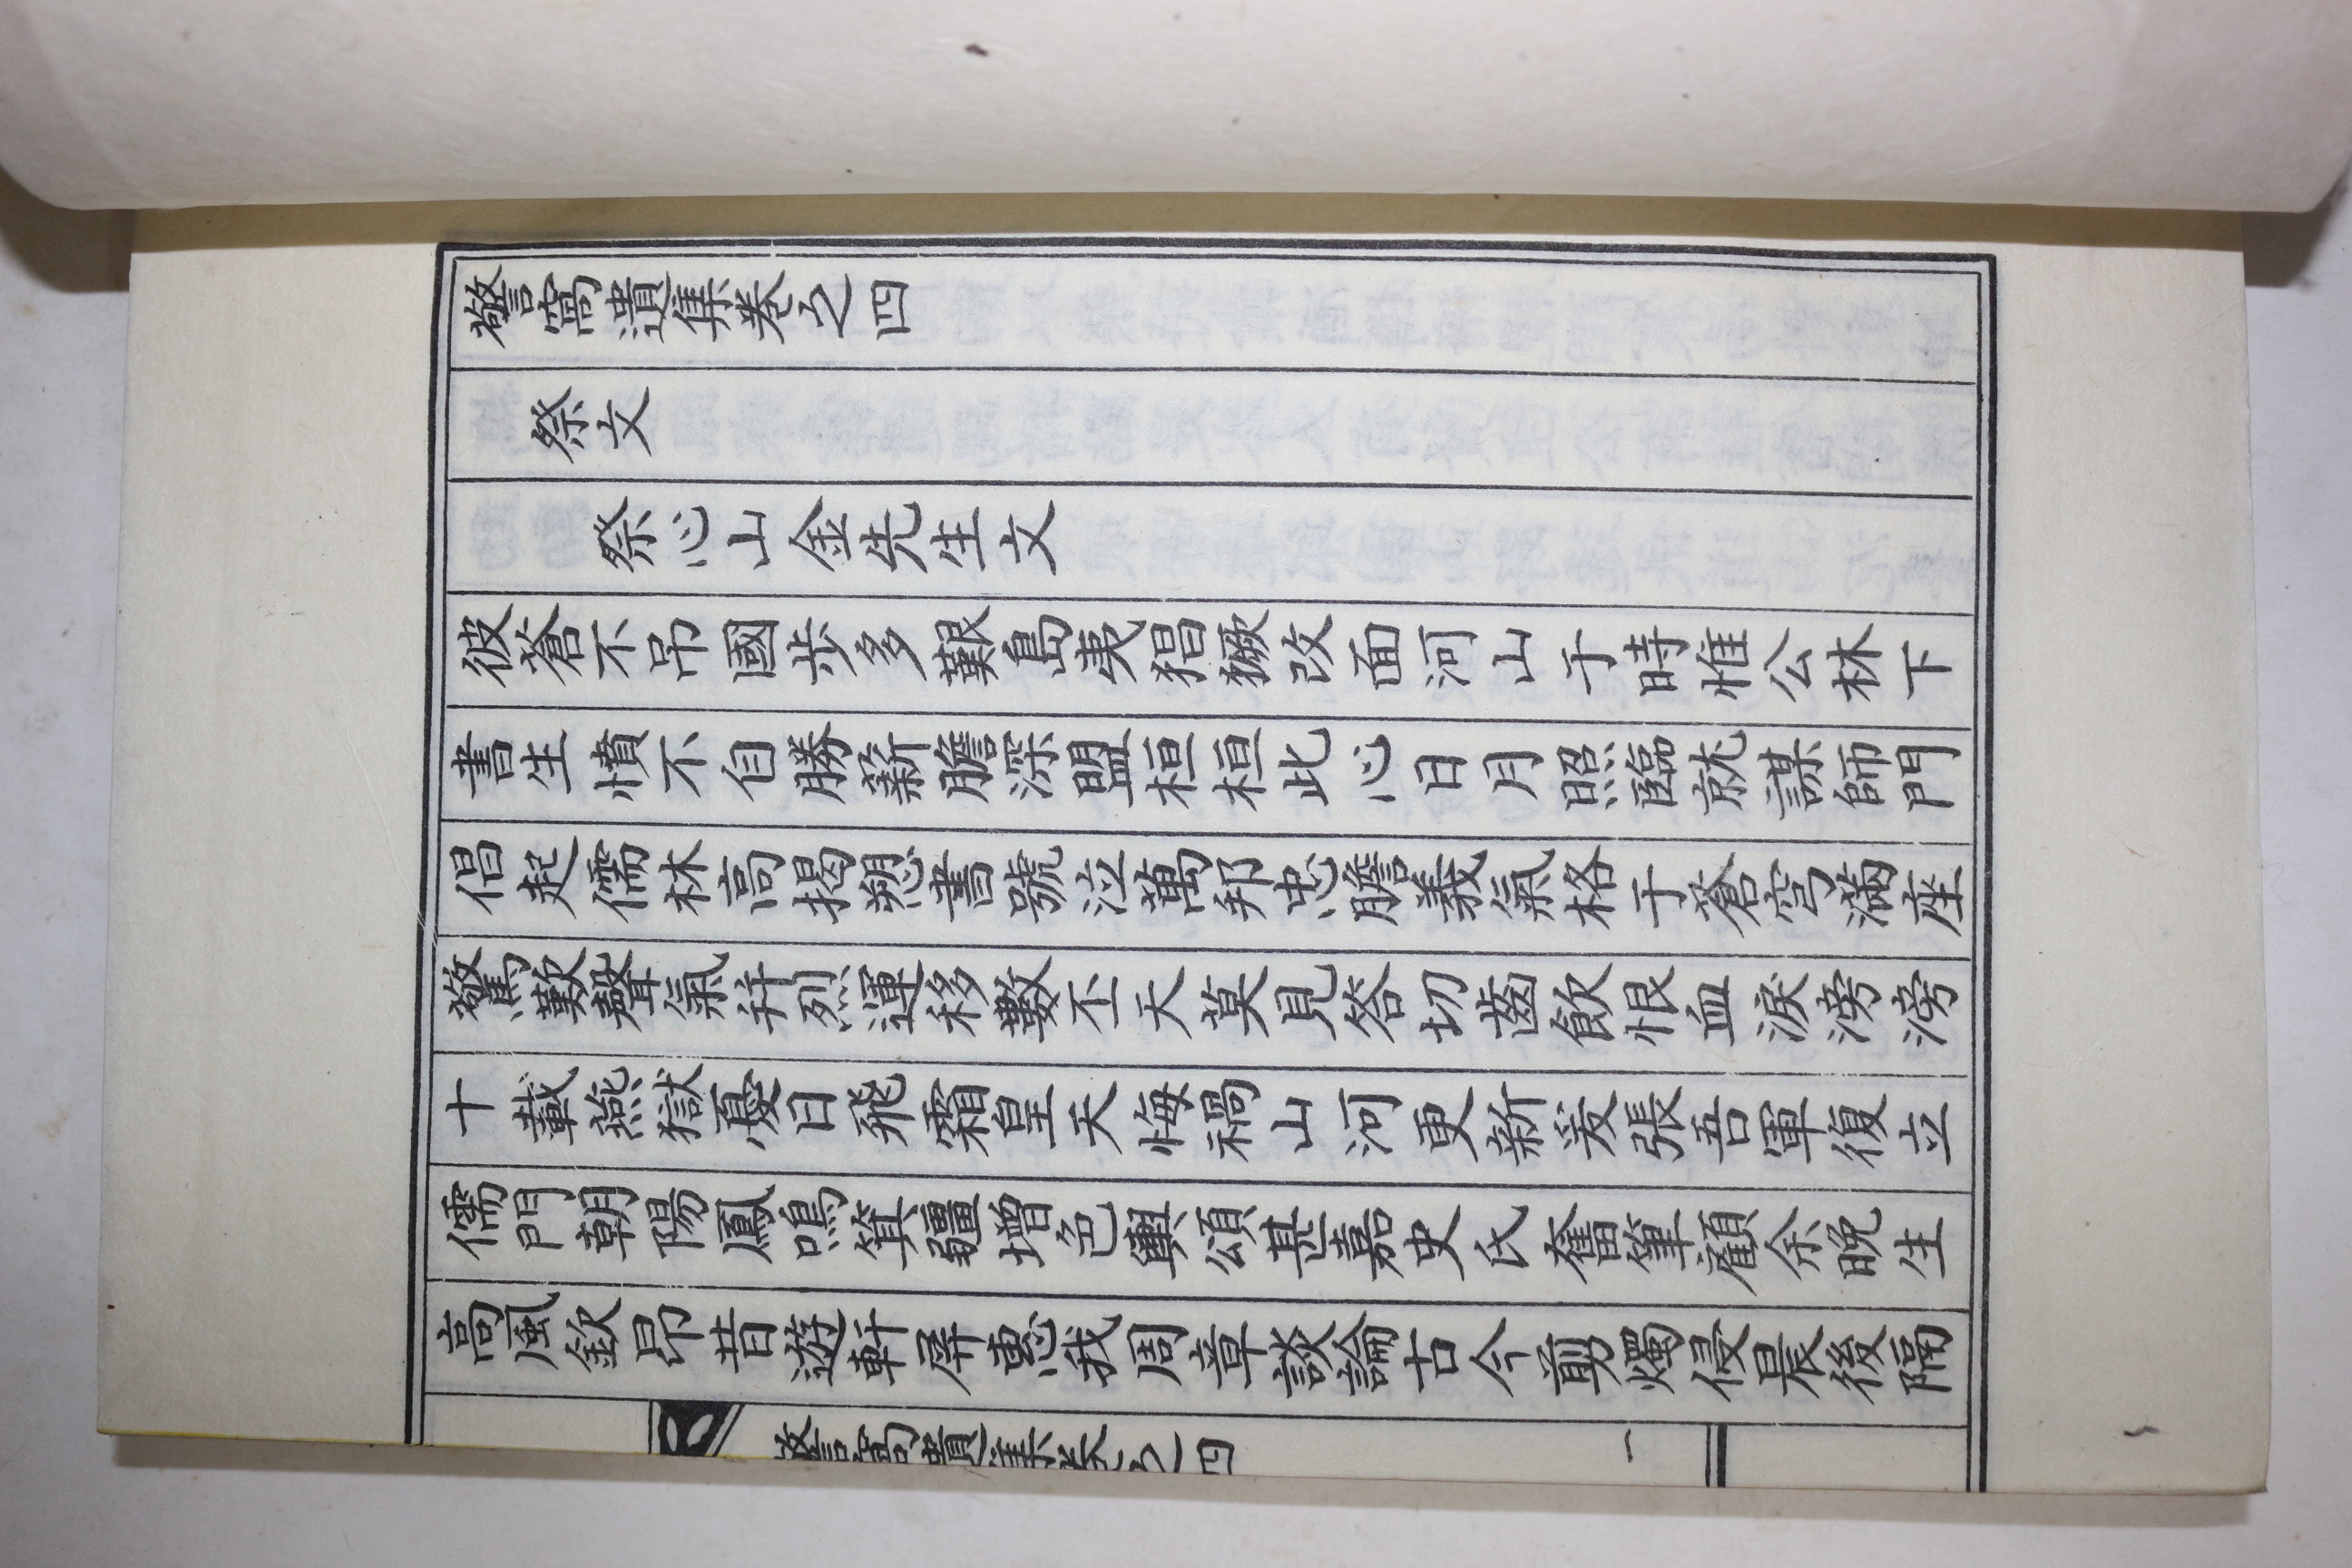 警窩遺集卷之四
祭文
祭心山金先生文
彼蒼不吊國步多艱島夷猖獗改面河山于時惟公林下
書生憤不自勝薪膽深盟桓桓此心日月照臨就謀師門
倡起儒林高揭愬書號泣萬邦忠膽義氣格于蒼穹滿座
驚歎聲氣幷烈運移數丕天莫見答切齒飮恨血淚滂滂
十載燕獄憂日飛霜皇天悔禍山河更新爰張吾軍復立
儒門朝陽鳳鳴箕疆增色輿頌甚嘉史氏奮筆顧余晚生
高風欽昂昔遊軒屏惠我周章談論古今剪燭侵晨後隔
警窩遺集卷之四
一